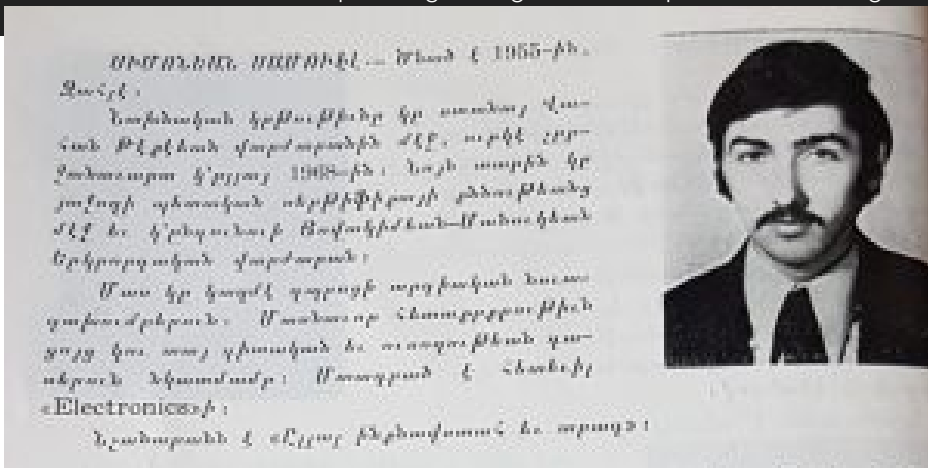 ՍԻՄՈՆԵԱՆ ՍԱՄՈՒԷԼ.— Ծնած է 1955-ին,
Զահլէ։
Նախնական կրթութիւնը կը ստանայ Վա-
հան Թէքէեան վարժարանին մէջ, ուրկէ շրջ-
ջանաւարտ կ՚ըլլայ 1968-ին։ Նոյն տարին կը
յաջողի պետական սերթիֆիքայի քննութեանց
մէջ եւ կ՚ընդունուի Յովակիմեան-Մանուկեան
Երկրորդական վարժարան։
Մաս կը կազմէ դպրոցի արդիական նուա-
գախումբերուն։ Մասնաւոր հետաքրքրութիւն
ցոյց կու տայ գիտական եւ ուսողութեան դա-
սերուն նկատմամբ։ Մտադրած է հետեւիլ
«Electronics»ի։
Նշանաբանն է «Ըլլալ ինքնավստահ եւ արագ»։